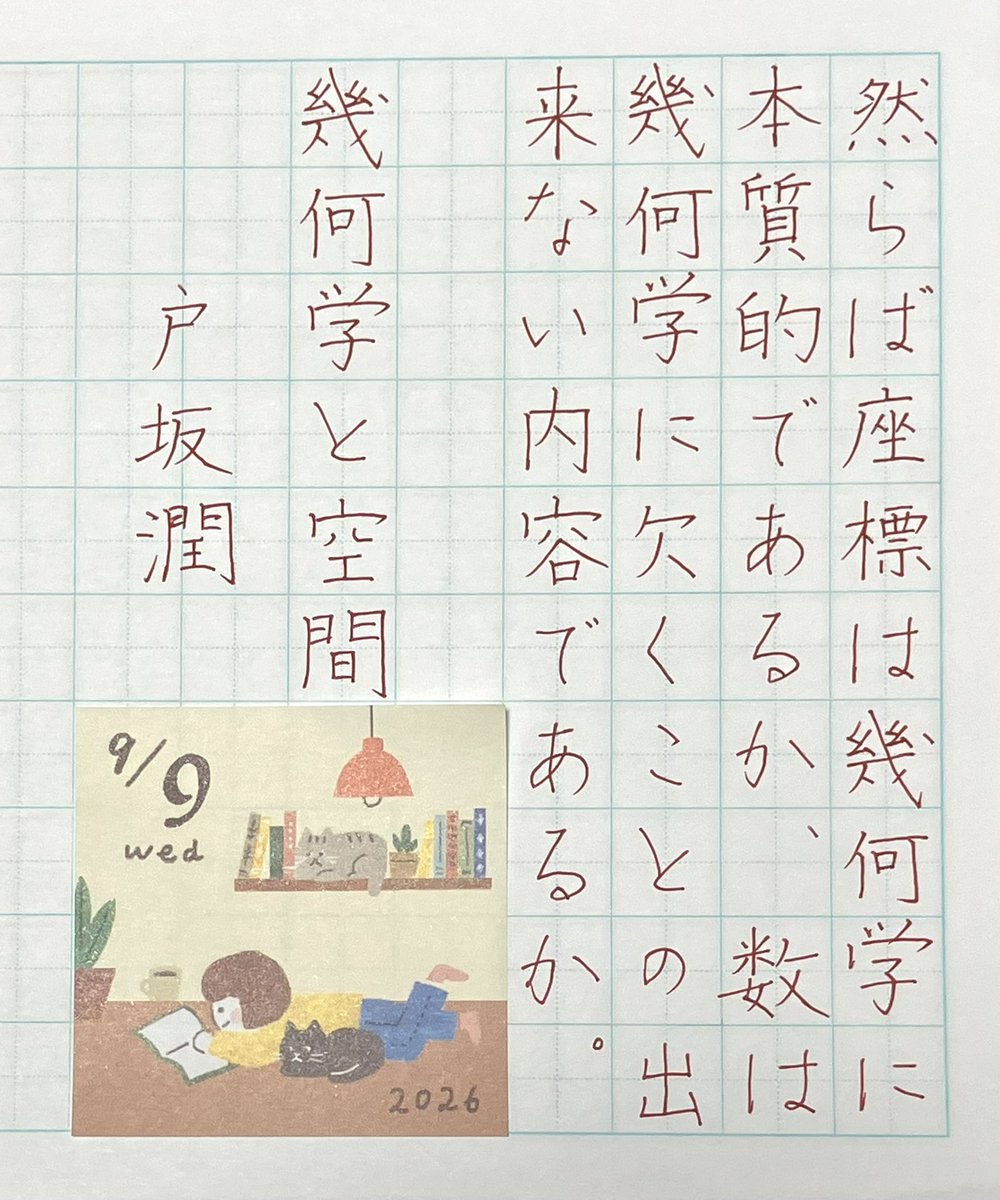 然らば座標は幾何学に
本質的であるか、数は
幾何学に欠くことの出
来ない内容であるか。
幾何学と空間
戸坂潤
9/9
wed
2026